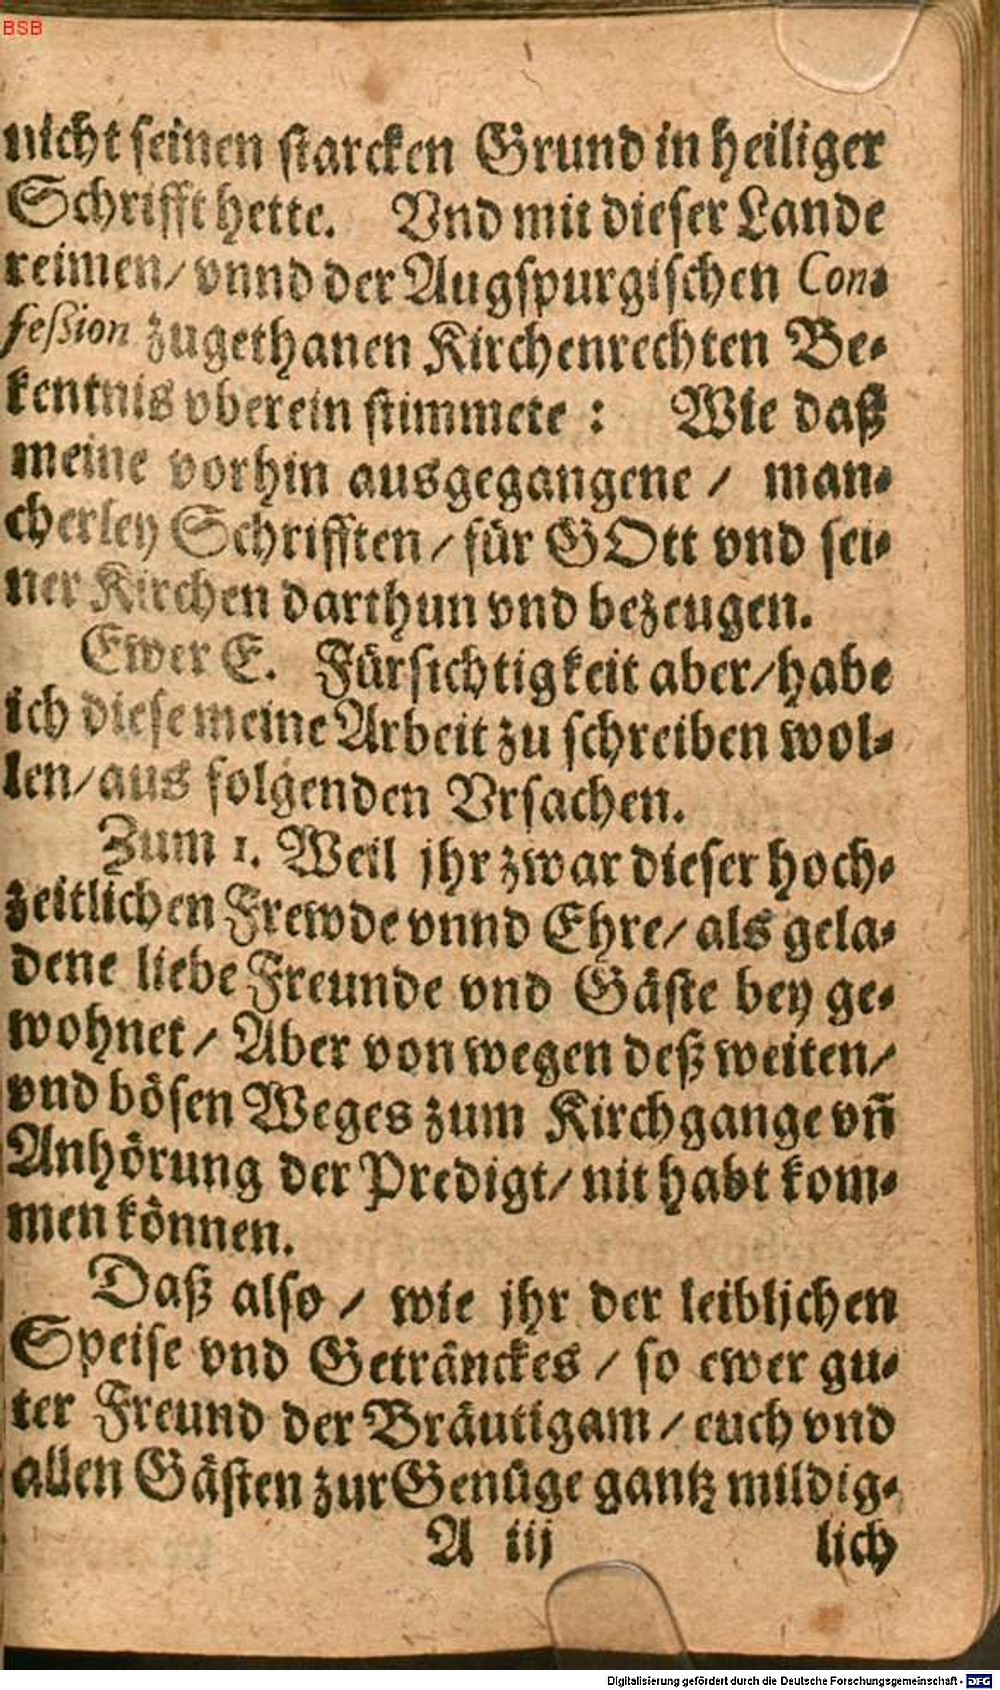 BSB
nicht seinen starcken Grund in heiliger
Schrifft hette. Vnd mit dieser Lande
reimen/ vnnd der Augspurgischen Con-
feßion zugethanen Kirchenrechten Be-
kentnis vberein stimmete : Wie daß
meine vorhin ausgegangene / man-
cherley Schrifften / für GOtt vnd sei-
ner Kirchen darthun vnd bezeugen.
Ewer E. Fürsichtigkeit aber/ habe
ich diese meine Arbeit zu schreiben wol-
len/ aus folgenden Vrsachen.
Zum 1. Weil jhr zwar dieser hoch-
zeitlichen Frewde vnnd Ehre/ als gela-
dene liebe Freunde vnd Gäste bey ge-
wohnet / Aber von wegen deß weiten/
vnd bösen Weges zum Kirchgange vñ
Anhörung der Predigt/ nit habt kom-
men können.
Daß also / wie jhr der leiblichen
Speise vnd Getränckes / so ewer gu-
ter Freund der Bräutigam / euch vnd
allen Gästen zur Genüge gantz mildig-
A iij lich
Digitalisierung gefördert durch die Deutsche Forschungsgemeinschaft - DFG